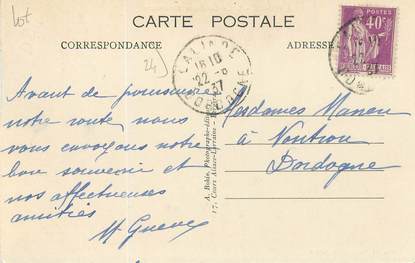 Lot
CARTE POSTALE
CORRESPONDANCE
ADRESSE
24
LALINDE
18 10
22 -8
37
DORDOGNE
POSTES
40c
Avant de poursuivre
notre route nous
vous envoyons notre
bon souvenir et
nos affectueuses
amitiés
Mesdames
à Nontron
Dordogne
A. Bobin,
17, Cours Alsace-Lorraine